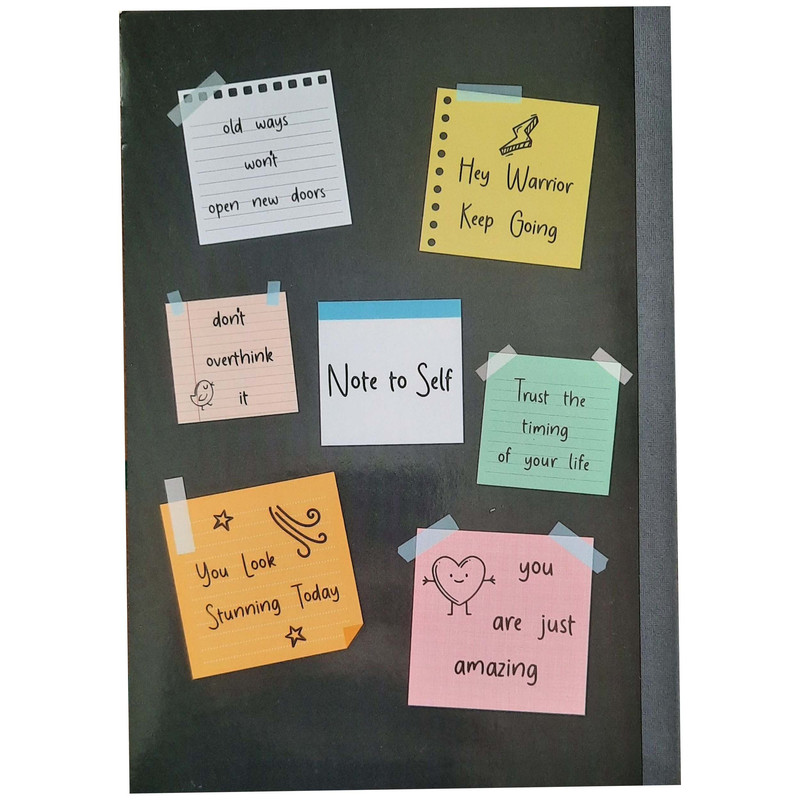 old ways
won't
open new doors
Hey Warrior
Keep Going
don't
overthink
it
Note to Self
Trust the
timing
of your life
You Look
Stunning Today
you
are just
amazing